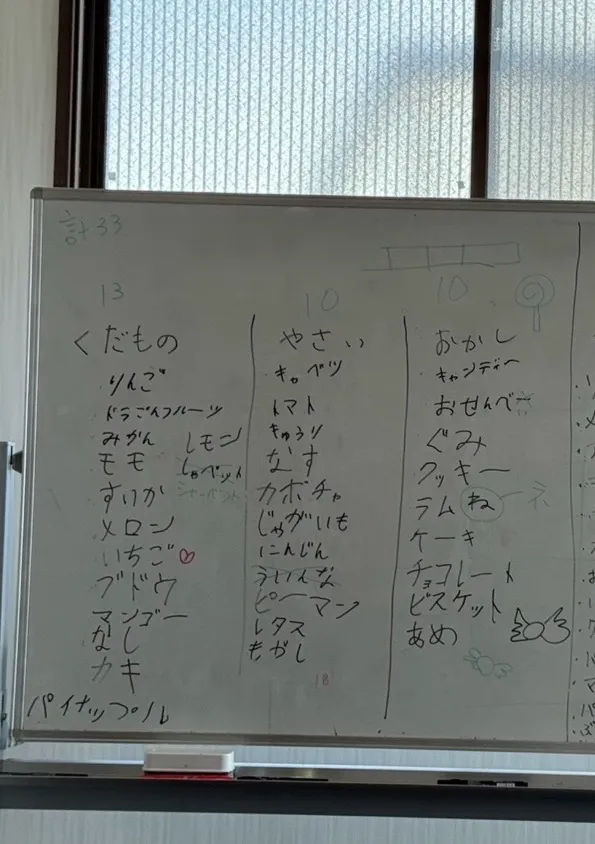 計33
13
くだもの
りんご
ドラごんフルーツ
みかん
レモン
モモ
しゃべット
すいか
メロン
いちご♡
ブドウ
マンゴー
なし
カキ
パイナップル
10
やさい
キャベツ
トマト
きゅうり
なす
カボチャ
じゃがいも
にんじん
ピーマン
レタス
もやし
18
10
おかし
キャンディー
おせんべー
ぐみ
クッキー
ラムねーネ
ケーキ
チョコレート
ビスケット
あめ